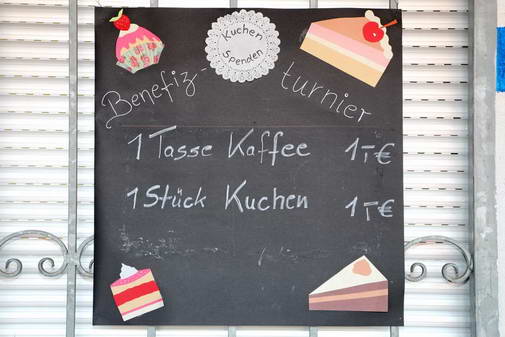 Kuchen
Spenden
Benefiz-
turnier
1 Tasse Kaffee 1,-€
1 Stück Kuchen 1,-€